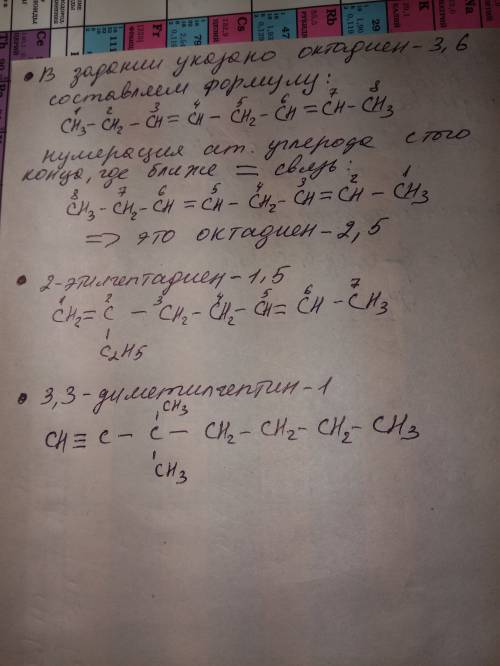 • В задании указано октадиен-3,6
составляем формулу:
1 2 3 4 5 6 7 8
CH3-CH2-CH=CH-CH2-CH=CH-CH3
нумерация ат. углерода с того
конца, где ближе = связь:
8 7 6 5 4 3 2 1
CH3-CH2-CH=CH-CH2-CH=CH-CH3
=> это октадиен-2,5
• 2-этилгептадиен-1,5
1 2 3 4 5 6 7
CH2=C-CH2-CH2-CH=CH-CH3
C2H5
• 3,3-диметилгептин-1
CH3
CH≡C-C-CH2-CH2-CH2-CH3
CH3